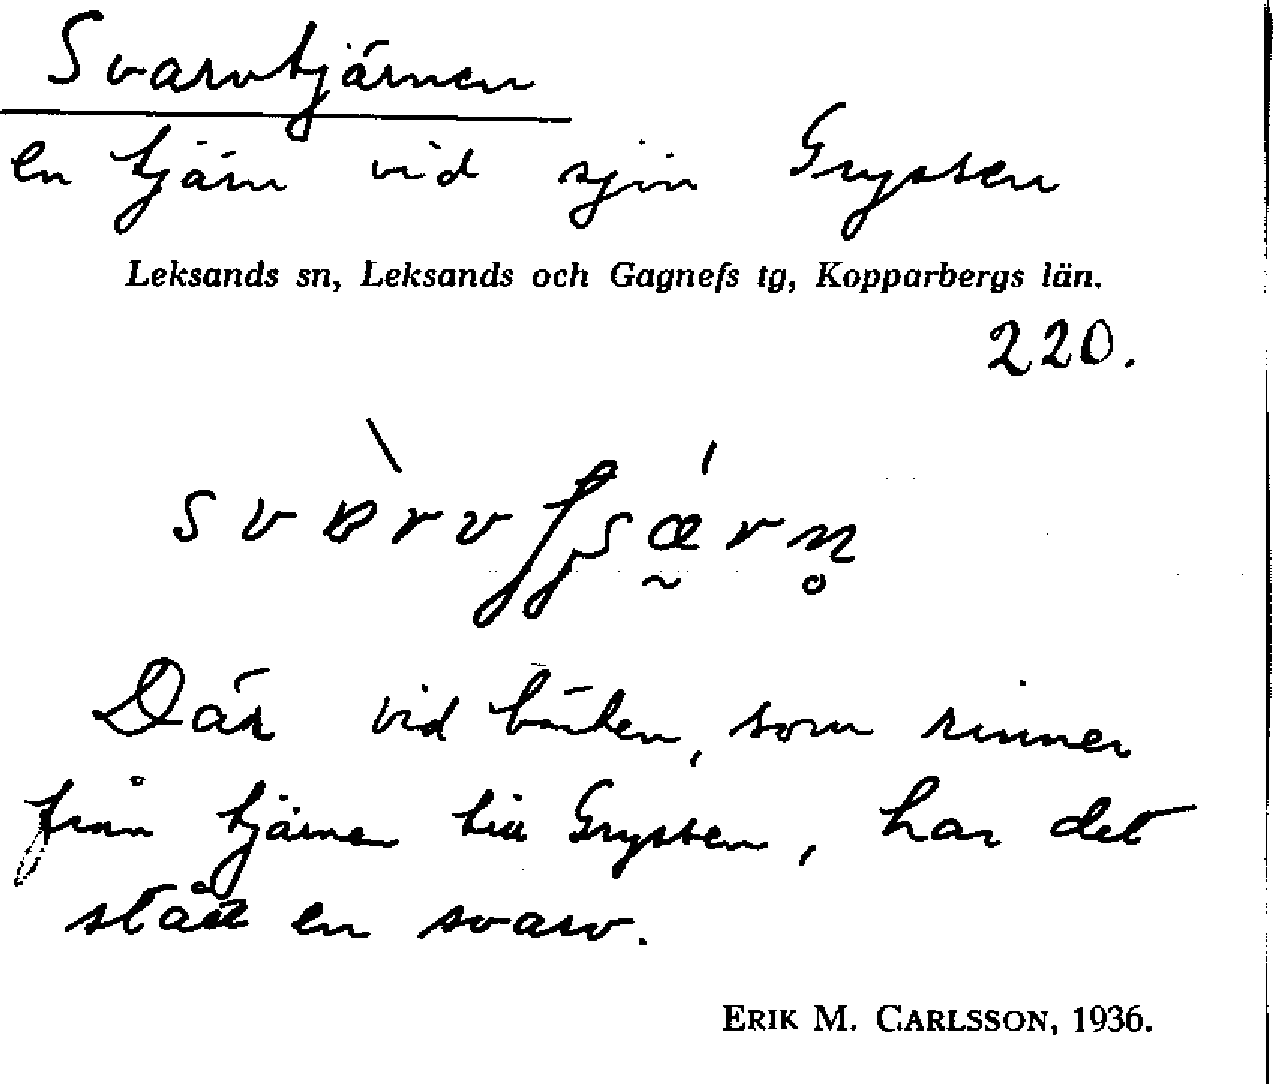 Svarvtjärnen
en tjärn vid sjön Grysten
Leksands sn, Leksands och Gagnefs tg, Kopparbergs län.
220.
Där vid bäcken, som rinner
från tjärnen till Grysten, har det
stått en svarv.
ERIK M. CARLSSON, 1936.